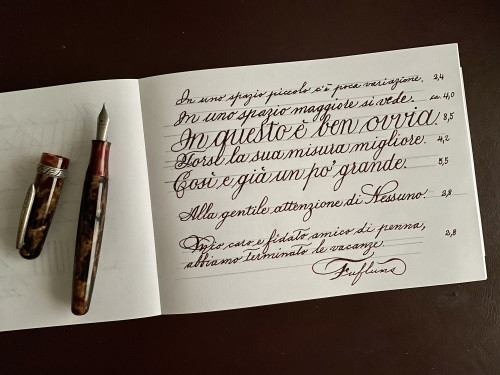 In uno spazio piccolo c'è poca variazione. 2,4
In uno spazio maggiore si vede. ca. 4,0
In questo è ben ovvia. 8,5
Forse la sua misura migliore. 4,2
Così e già un po' grande. 5,5
Alla gentile attenzione di Nessuno. 3,8
Mio caro e fidato amico di penna, 2,8
abbiamo terminato le vacanze.
Fufluns